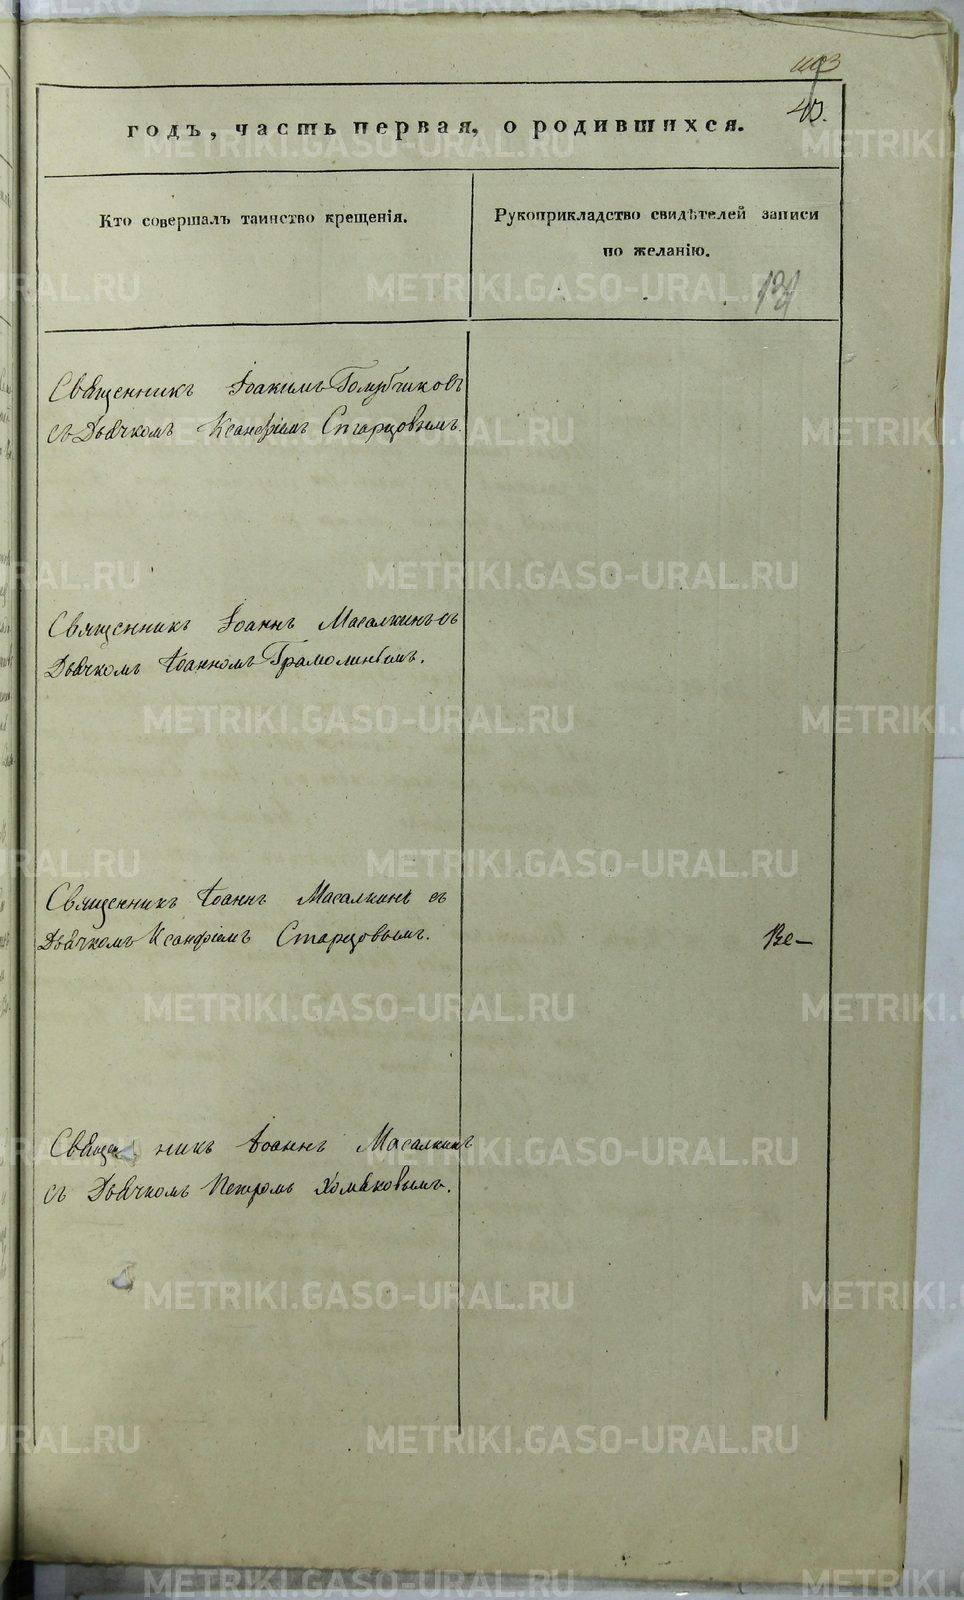 годъ, часть первая, о родившихся.
Кто совершалъ таинство крещенія.
Рукоприкладство свидѣтелей записи
по желанію.
Священникъ Іоакимъ Голубчиковъ
съ Дьячкомъ Ксанфіемъ Старцовымъ.
Священникъ Іоаннъ Масалкинъ съ
Дьячкомъ Іоанномъ
Священникъ Іоаннъ Масалкинъ съ
Дьячкомъ Ксанфіемъ Старцовымъ.
Ве-
Священникъ Іоаннъ Масалкинъ
съ Дьячкомъ Петромъ Хомяковымъ.
METRIKI.GASO-URAL.RU